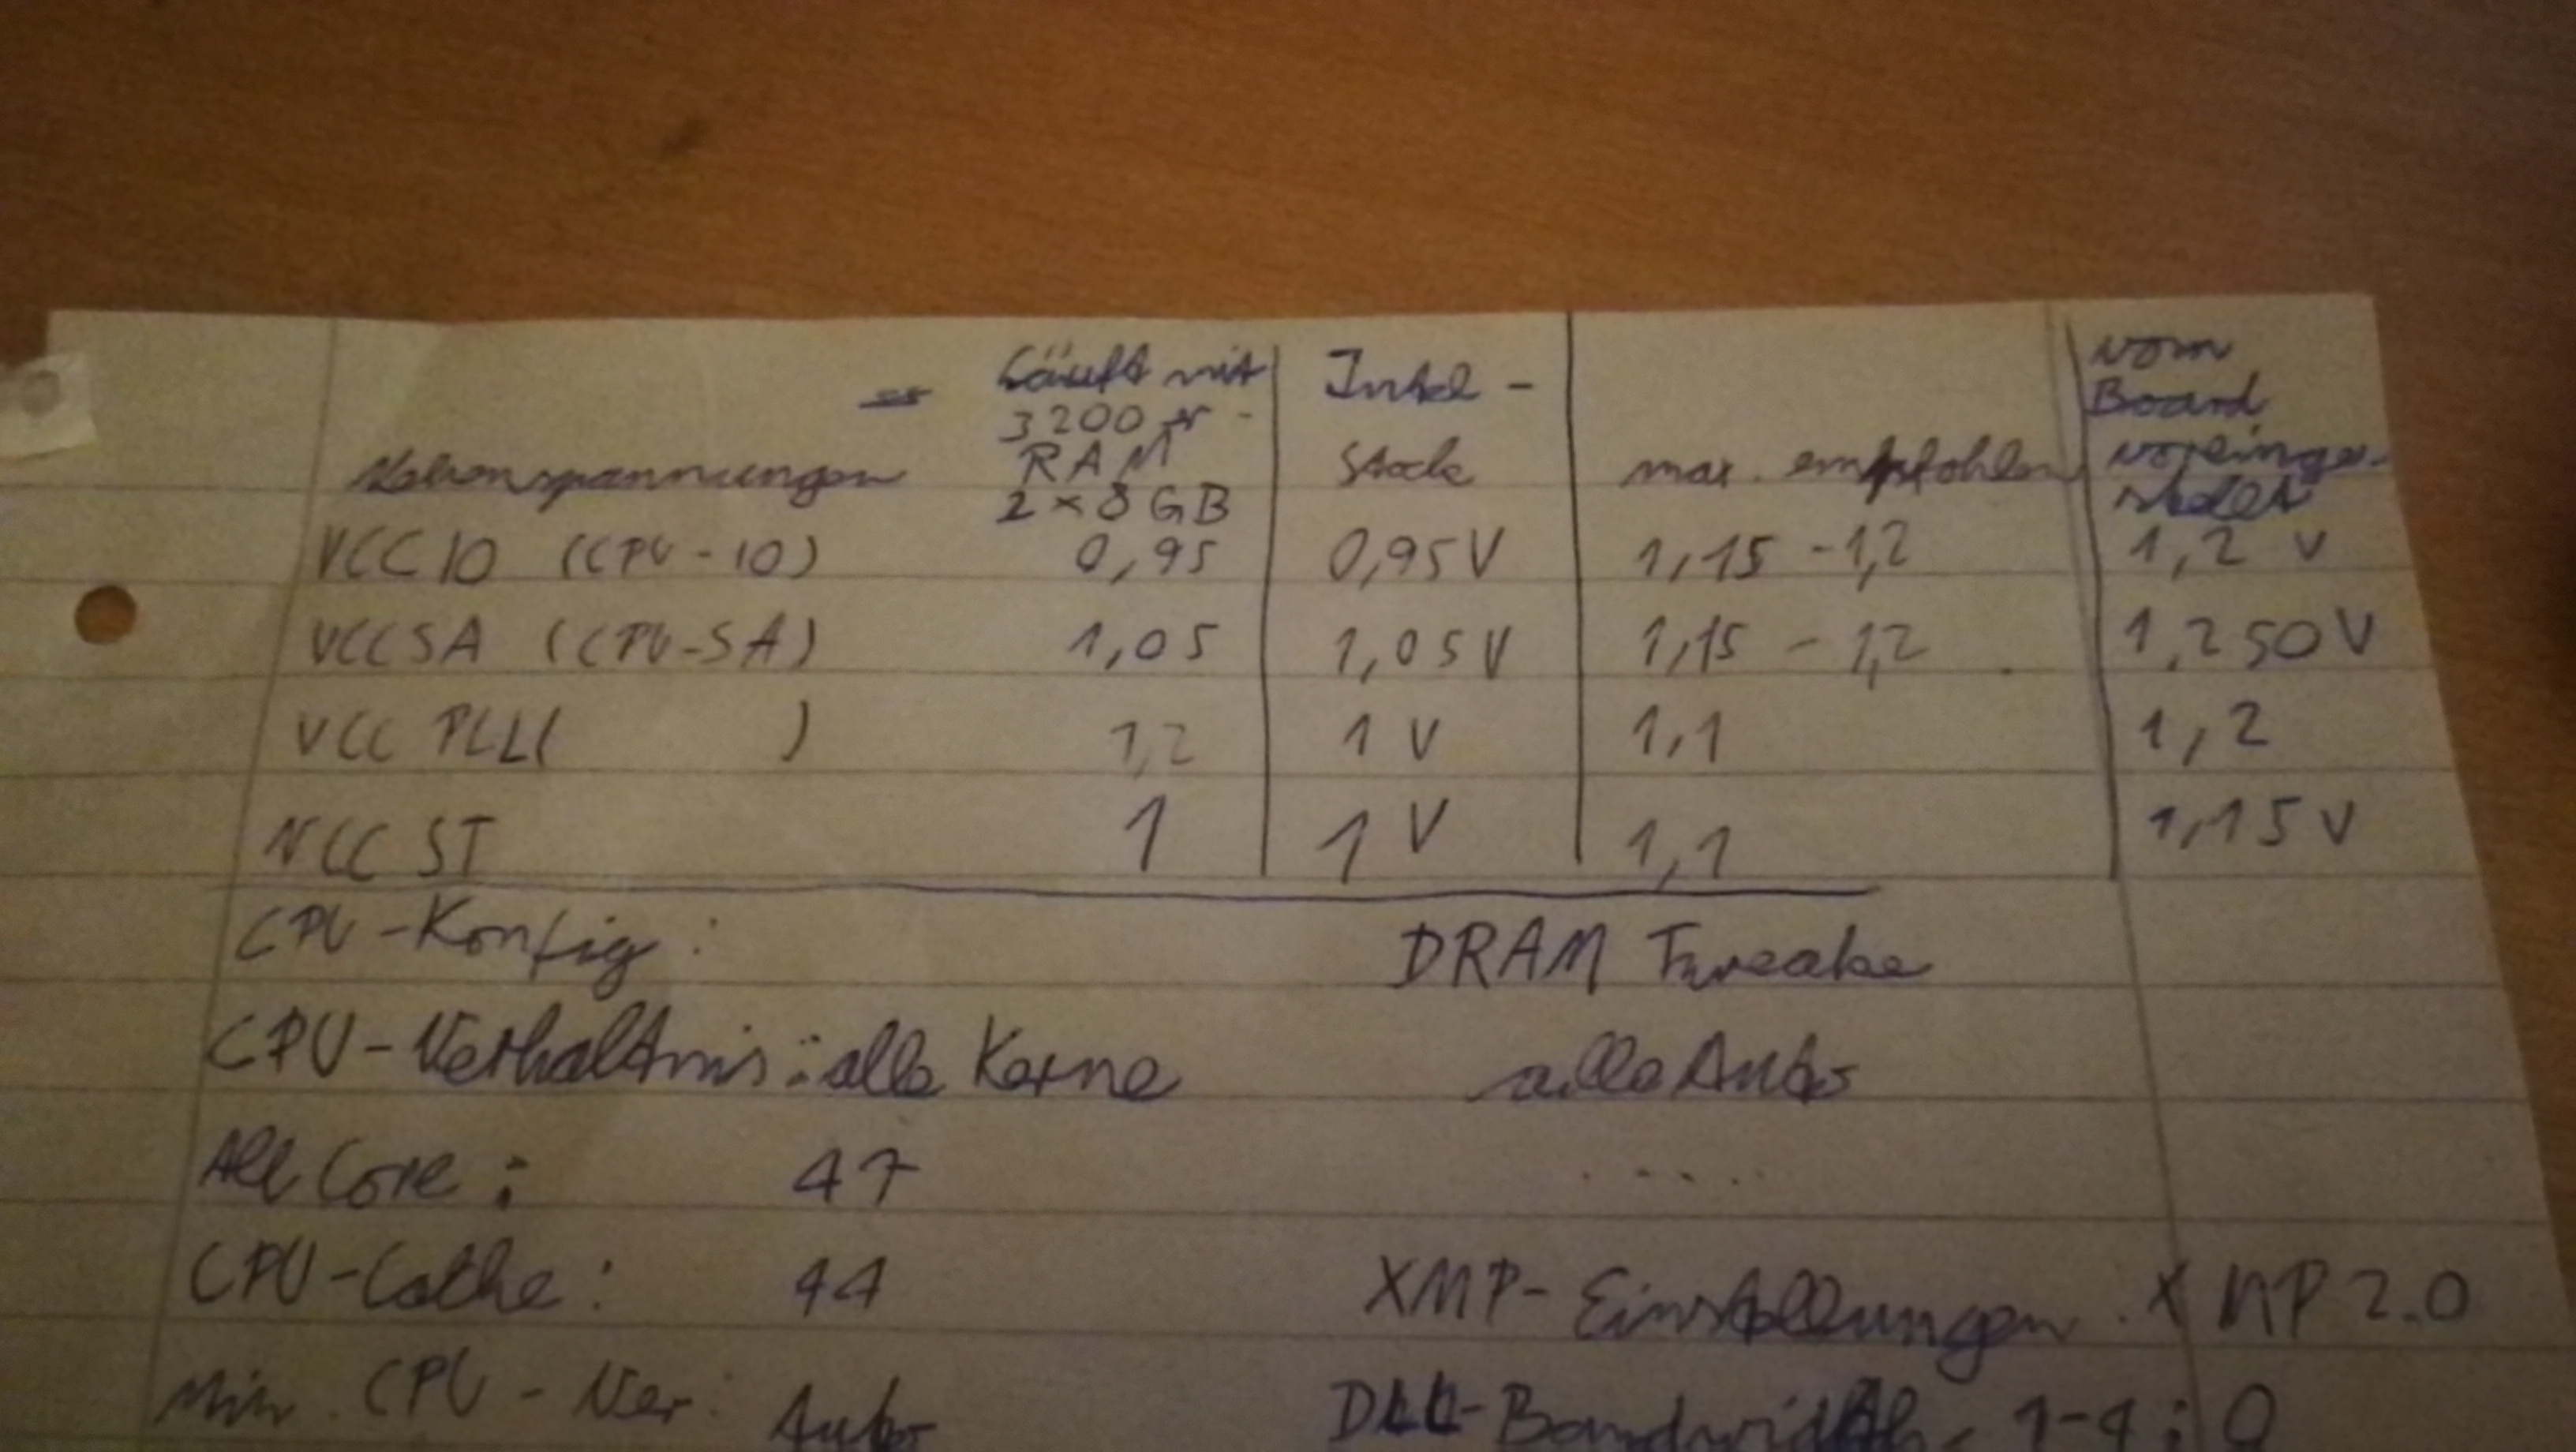 Läuft mit Intel - vom
3200 er - Board
Nebenspannungen RAM Stock max. empfohlen voreinge-
2 x 8 GB stellt
VCC IO (CPU-IO) 0,95 0,95 V 1,15 - 1,2 1,2 V
VCCSA (CPU-SA) 1,05 1,05 V 1,15 - 1,2 1,250 V
VCC PLL ( ) 1,2 1 V 1,1 1,2
VCC ST 1 1 V 1,1 1,15 V
CPU-Konfig: DRAM Tweake
CPU-Verhaltnis: alle Kerne alle Auto
All Core: 47 .....
CPU-Cathe: 44 XMP-Einstellungen. XMP 2.0
Min. CPU - Ver: Auto DLL-Bandwidth. 1-4: 0